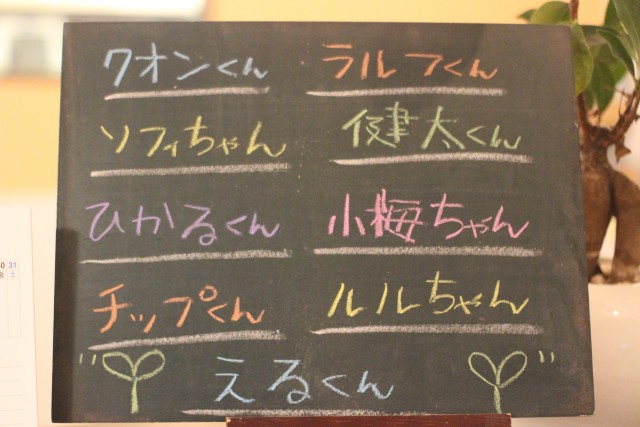 クオンくん ラルフくん
ソフィちゃん 健太くん
ひかるくん 小梅ちゃん
チップくん ルルちゃん
えるくん
31
土